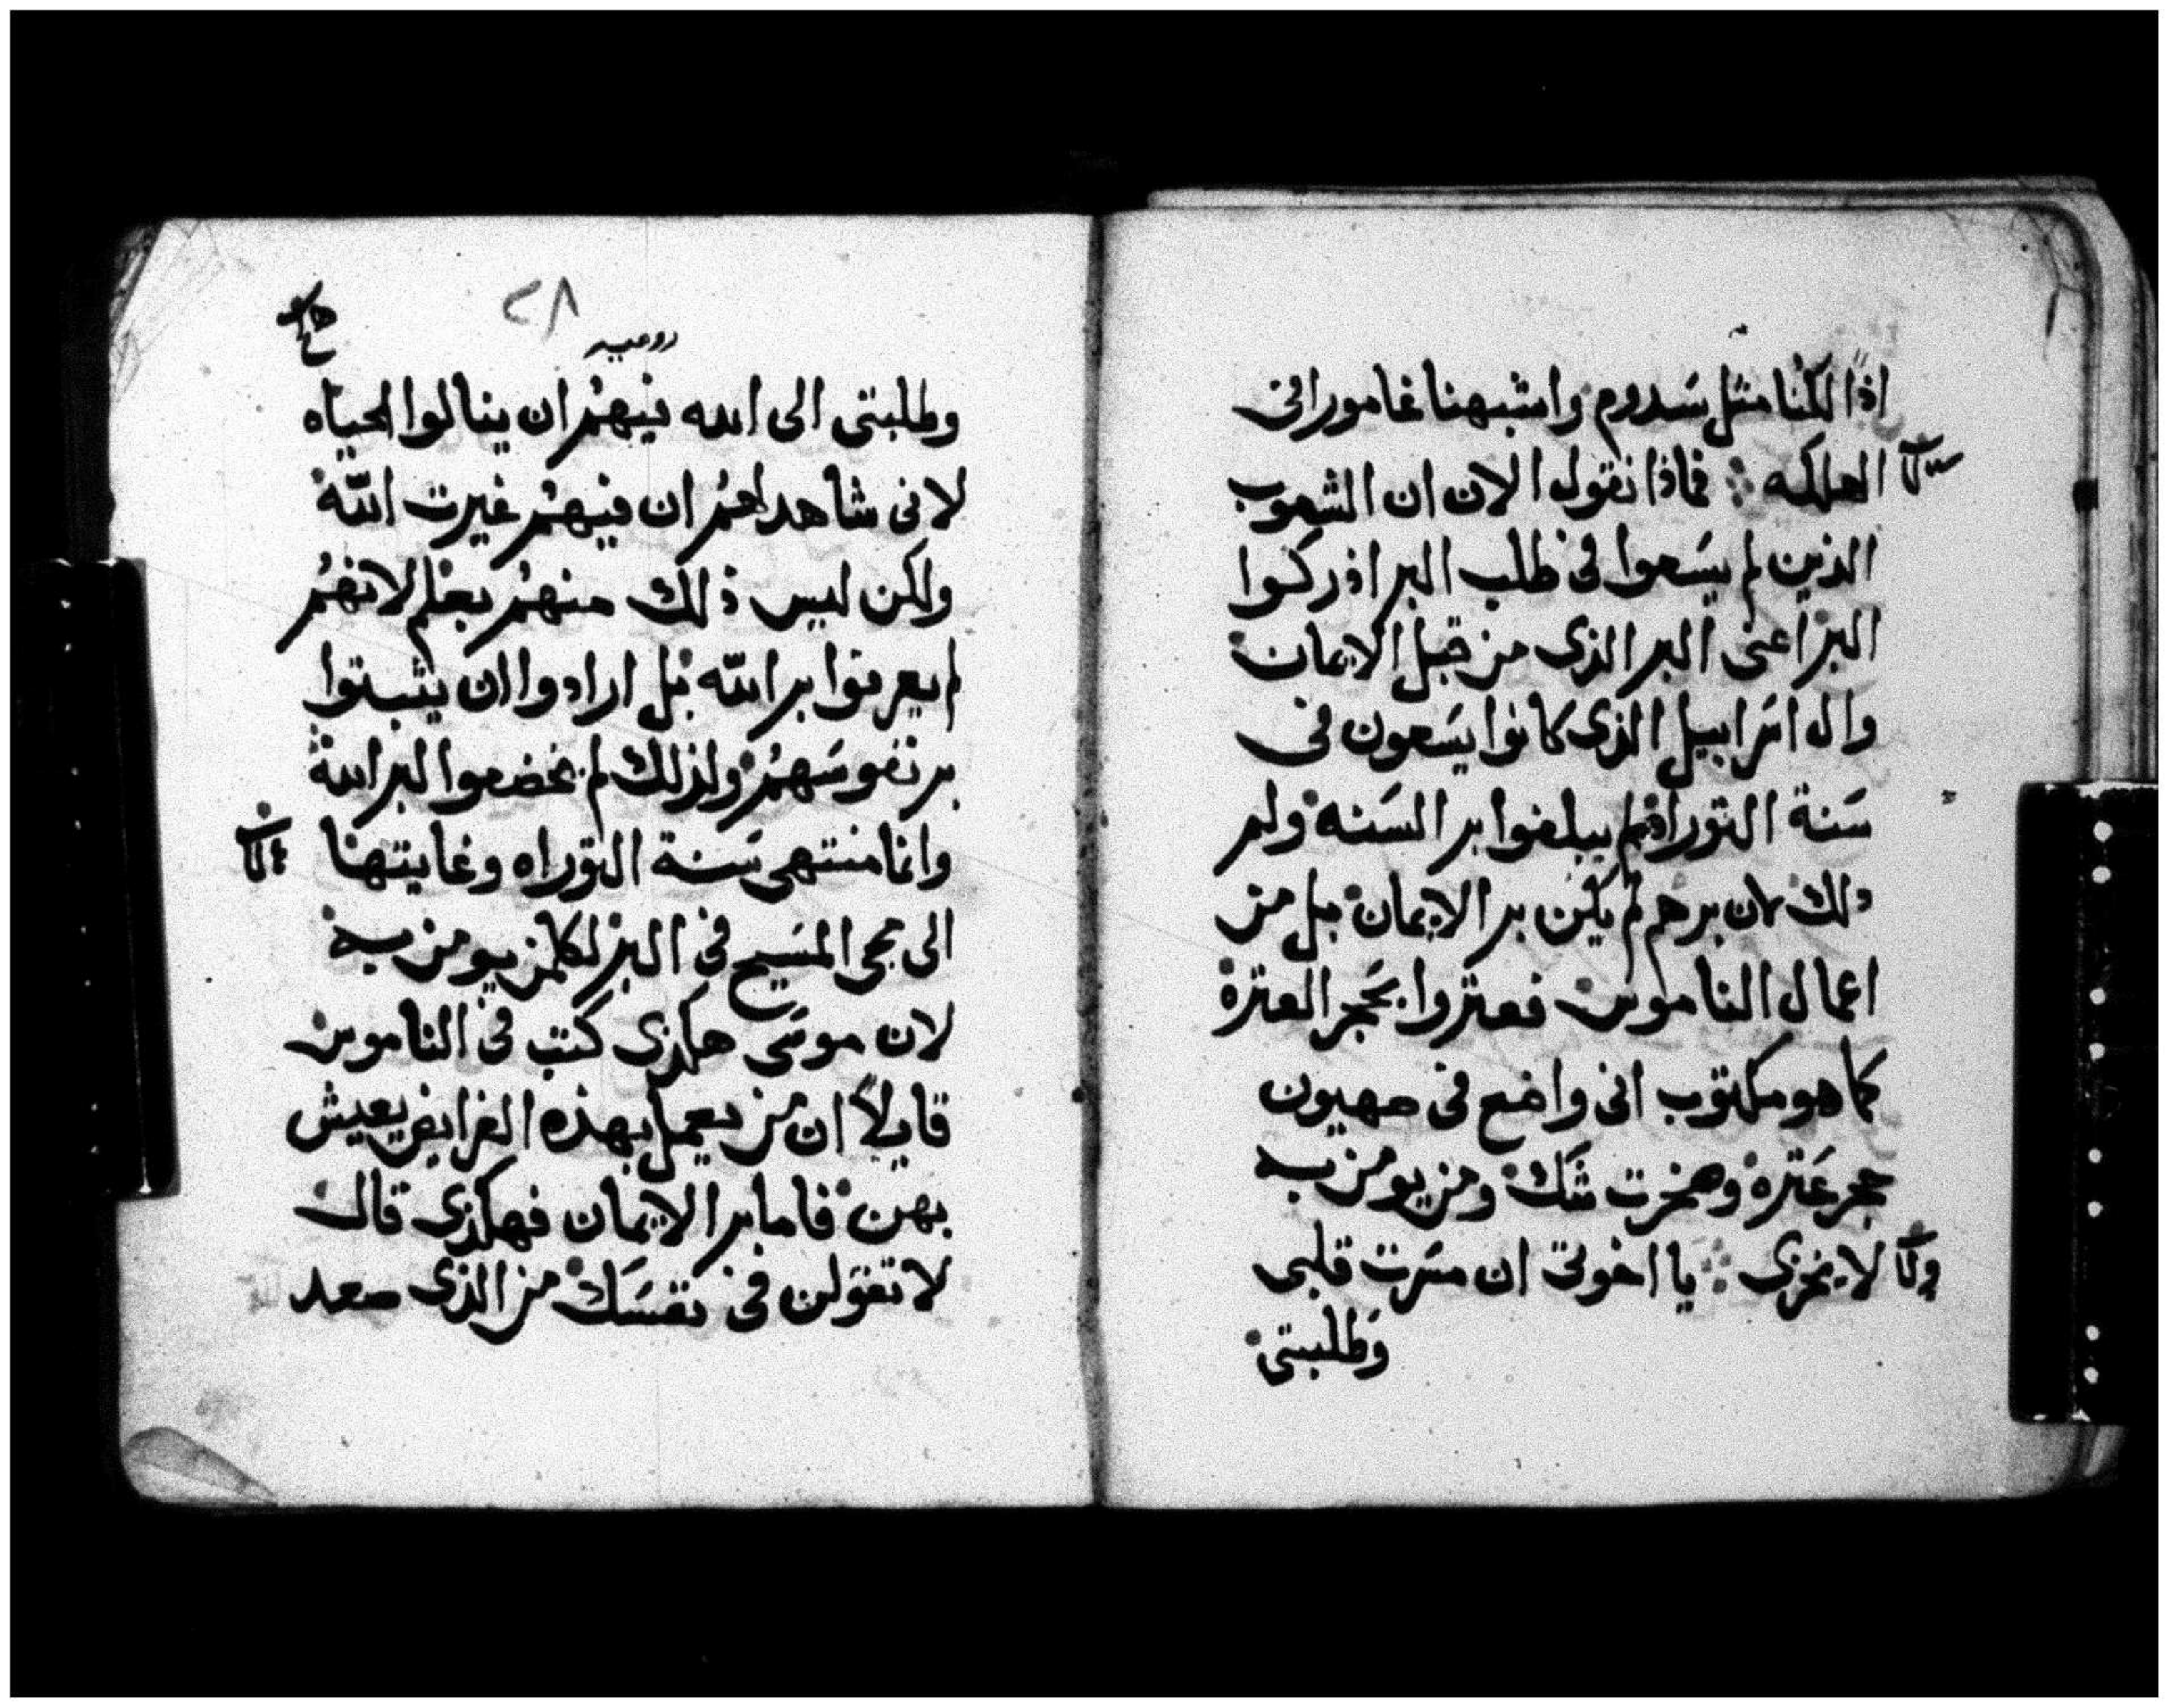 اذًا لكنا مثل سدوم واشبهنا غامورا فى
الهلكه ⁘ فماذا نقول الان ان الشعوب
الذين لم يسعوا فى طلب البر ادركوا
البر اعنى البر الذى من قبل الايمان
وال اسراييل الذى كانوا يسعون فى
سنة التوراه لم يبلغوا بر السنه ولم
ذلك لان برهم لم يكن بر الايمان بل من
اعمال الناموس فعتروا بحجر العترة
كما هو مكتوب انى واضع فى صهيون
حجر عترة وصخرت شك ومن يومن به
لا يخزى ⁘ يا اخوتى ان مسرت قلبى
وطلبتى
٢٨
روميه
وطلبتى الى الله فيهم ان ينالوا الحياه
لانى شاهد لهم ان فيهم غيرت الله
ولكن ليس ذلك منهم بعلم لانهم
لم يعرفوا بر الله بل ارادوا ان يثبتوا
بر نفوسهم ولذلك لم يخضعوا لبر الله
وانما منتهى سنة التوراه وغايتها
الى مجى المسيح فى البر لكلمن يومن به
لان موسى هكذى كتب فى الناموس
قايلاً ان من يعمل بهذه الفرايض يعيش
بهن فاما بر الايمان فهكذى قال
لا تقولن فى نفسك من الذى صعد